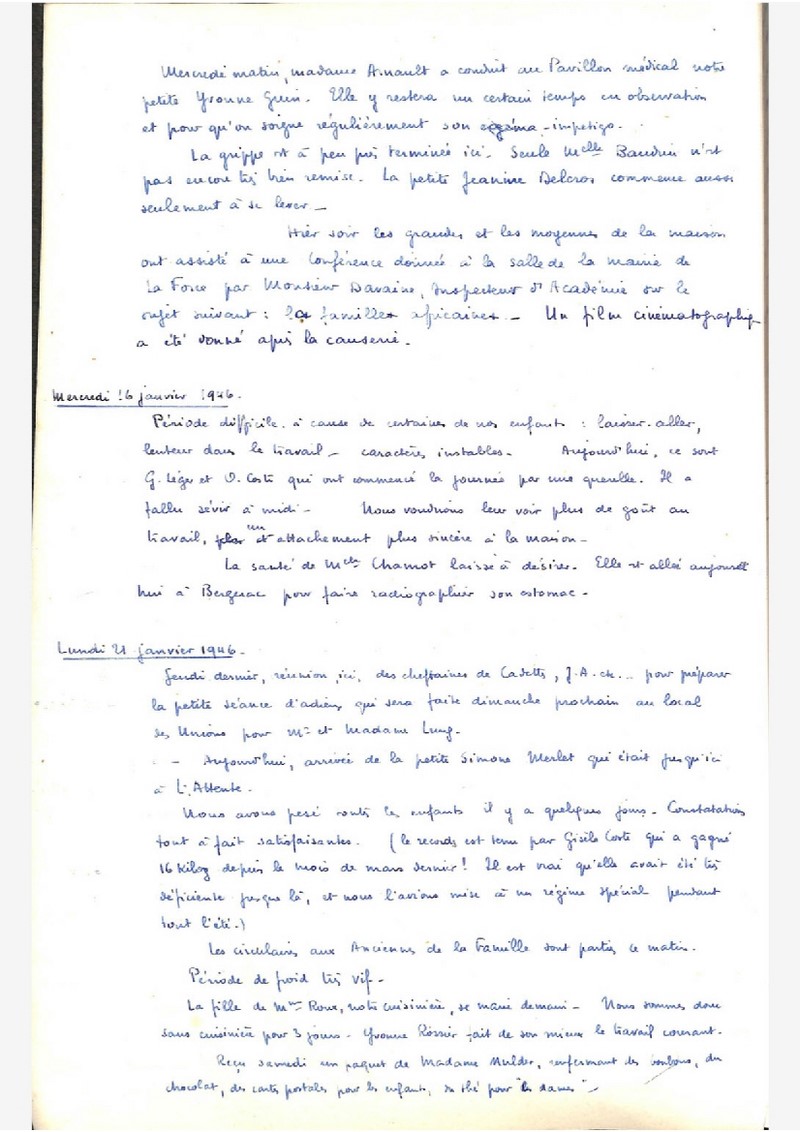 Mercredi matin, madame Arnault a conduit au Pavillon médical notre
petite Yvonne Guin. Elle y restera un certain temps en observation
et pour qu'on soigne régulièrement son eczéma-impetigo.
La grippe est à peu près terminée ici. Seule Melle Baudrin n'est
pas encore très bien remise. La petite Jeanine Delcros commence aussi
seulement à se lever _
Hier soir les grandes et les moyennes de la maison
ont assisté à une Conférence donnée à la salle de la mairie de
La Force par Monsieur Davaine, Inspecteur d'Académie sur le
sujet suivant : les familles africaines _ Un film cinématographiq
a été donné après la causerie.
Mercredi 16 janvier 1946.
Période difficile à cause de certaines de nos enfants : laisser-aller,
lenteur dans le travail _ caractères instables. Aujourd'hui, ce sont
G. Léger et O. Coste qui ont commencé la journée par une querelle. Il a
fallu sévir à midi _ Nous voudrions leur voir plus de goût au
travail, un attachement plus sincère à la maison _
La santé de Melle Chamot laisse à désirer. Elle est allée aujourd'
hui à Bergerac pour faire radiographier son estomac _
Lundi 21 janvier 1946.
Jeudi dernier, réunion, ici, des cheftaines de Cadettes, J.A. ch... pour préparer
la petite séance d'adieux qui sera faite dimanche prochain au local
des Unions pour Mr et Madame Lung.
_ Aujourd'hui, arrivée de la petite Simone Merlet qui était jusqu'ici
à L'Attente.
Nous avons pesé toutes les enfants il y a quelques jours _ Constatations
tout à fait satisfaisantes. (le records est tenu par Gisèle Coste qui a gagné
16 kilog depuis le mois de mars dernier ! Il est vrai qu'elle avait été très
déficiente jusque là, et nous l'avions mise à un régime spécial pendant
tout l'été.)
Les circulaires aux Anciennes de la Famille sont parties ce matin.
Période de froid très vif _
La fille de Mme Roux, notre cuisinière, se marie demain _ Nous sommes donc
sans cuisinière pour 3 jours _ Yvonne Rossier fait de son mieux le travail courant.
Reçu samedi un paquet de Madame Mulder, renfermant des bonbons, du
chocolat, des cartes postales pour les enfants, du thé pour "les dames" _